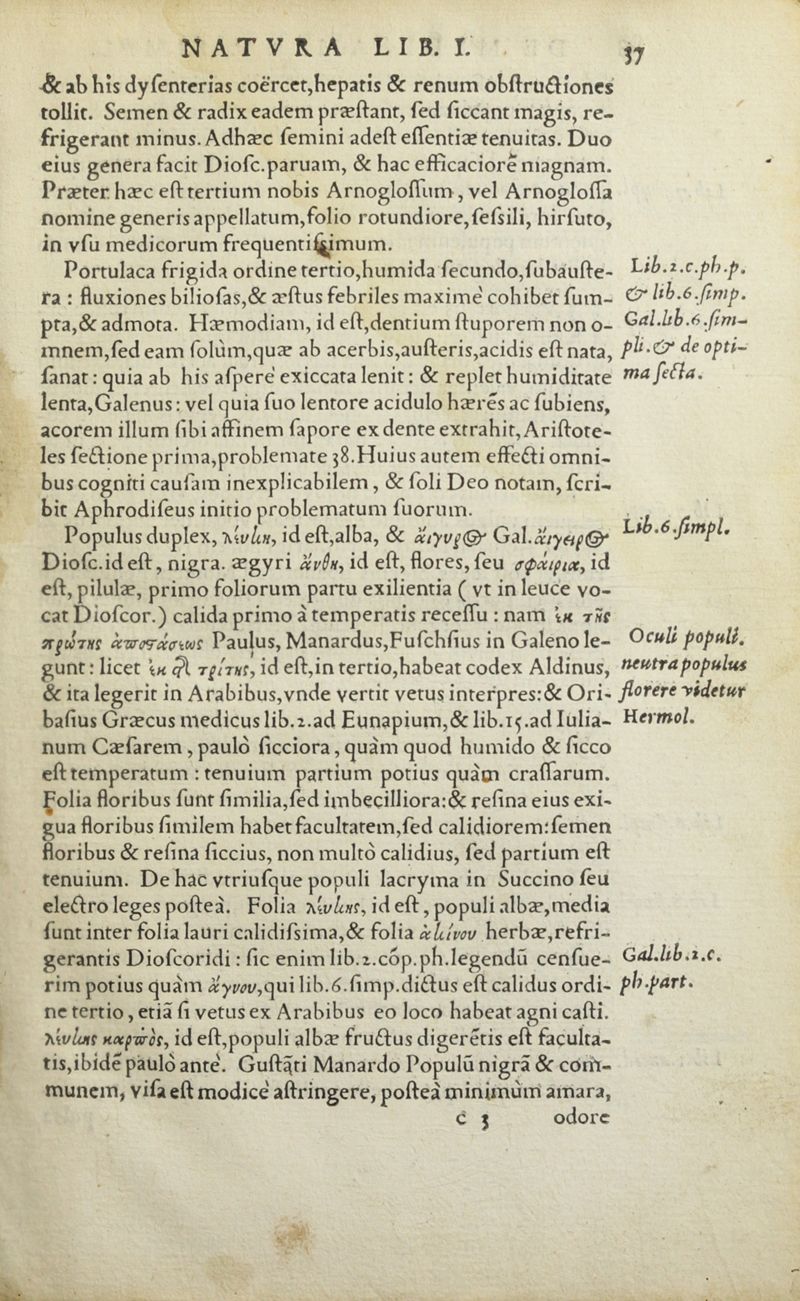 NATVRA LIB. I. 37
& ab his dyſenterias coërcet,hepatis & renum obſtructiones
tollit. Semen & radix eadem præſtant, ſed ſiccant magis, re-
frigerant minus. Adhæc ſemini adeſt eſſentiæ tenuitas. Duo
eius genera facit Dioſc.paruam, & hac efficaciorē magnam.
Præter hæc eſt tertium nobis Arnogloſſum, vel Arnogloſſa
nomine generis appellatum,folio rotundiore,ſeſsili, hirſuto,
in vſu medicorum frequentiſsimum.
Portulaca frigida ordine tertio,humida ſecundo,ſubauſte-
Lib.2.c.ph.p.
ra : fluxiones bilioſas,& æſtus febriles maximè cohibet ſum-
& lib.6.ſimp.
pta,& admota. Hæmodiam, id eſt,dentium ſtuporem non o-
Gal.lib.6.ſim-
mnem,ſed eam ſolùm,quæ ab acerbis,auſteris,acidis eſt nata,
pli.& de opti-
ſanat : quia ab his aſperè exiccata lenit : & replet humiditate
ma ſecta.
lenta,Galenus : vel quia ſuo lentore acidulo hærēs ac ſubiens,
acorem illum ſibi affinem ſapore ex dente extrahit,Ariſtote-
les ſectione prima,problemate 38.Huius autem effecti omni-
bus cogniti cauſam inexplicabilem, & ſoli Deo notam, ſcri-
bit Aphrodiſeus initio problematum ſuorum.
Populus duplex, λεύκη, id eſt,alba, & αἴγυρος Gal.αἴγειρος
Lib.6.ſimpl.
Dioſc.id eſt, nigra. ægyri ἄνθη, id eſt, flores, ſeu σφαίρια, id
eſt, pilulæ, primo foliorum partu exilientia ( vt in leuce vo-
cat Dioſcor.) calida primo à temperatis receſſu : nam ἐκ τῆς
πρώτης ἀποστάσεως Paulus, Manardus,Fuſchſius in Galeno le-
Oculi populi.
gunt : licet ἐκ δὲ τρίτης, id eſt,in tertio,habeat codex Aldinus,
neutra populus
& ita legerit in Arabibus,vnde vertit vetus interpres:& Ori-
florere videtur
baſius Græcus medicus lib.2.ad Eunapium,& lib.15.ad Iulia-
Hermol.
num Cæſarem, paulò ſicciora, quàm quod humido & ſicco
eſt temperatum : tenuium partium potius quàm craſſarum.
Folia floribus ſunt ſimilia,ſed imbecilliora:& reſina eius exi-
gua floribus ſimilem habet facultatem,ſed calidiorem:ſemen
floribus & reſina ſiccius, non multò calidius, ſed partium eſt
tenuium. De hac vtriuſque populi lacryma in Succino ſeu
electro leges poſteà. Folia λεύκης, id eſt, populi albæ,media
ſunt inter folia lauri calidiſsima,& folia ἀκίνου herbæ,refri-
gerantis Dioſcoridi : ſic enim lib.2.cōp.ph.legendū cenſue-
Gal.lib.2.c.
rim potius quàm ἄγνου,qui lib.6.ſimp.dictus eſt calidus ordi-
ph.part.
ne tertio, etiā ſi vetus ex Arabibus eo loco habeat agni caſti.
λεύκης καρπὸς, id eſt,populi albæ fructus digerētis eſt faculta-
tis,ibidē paulò antè. Guſtāti Manardo Populū nigrā & com-
munem, viſa eſt modicè aſtringere, poſteà minimùm amara,
c 3 odore